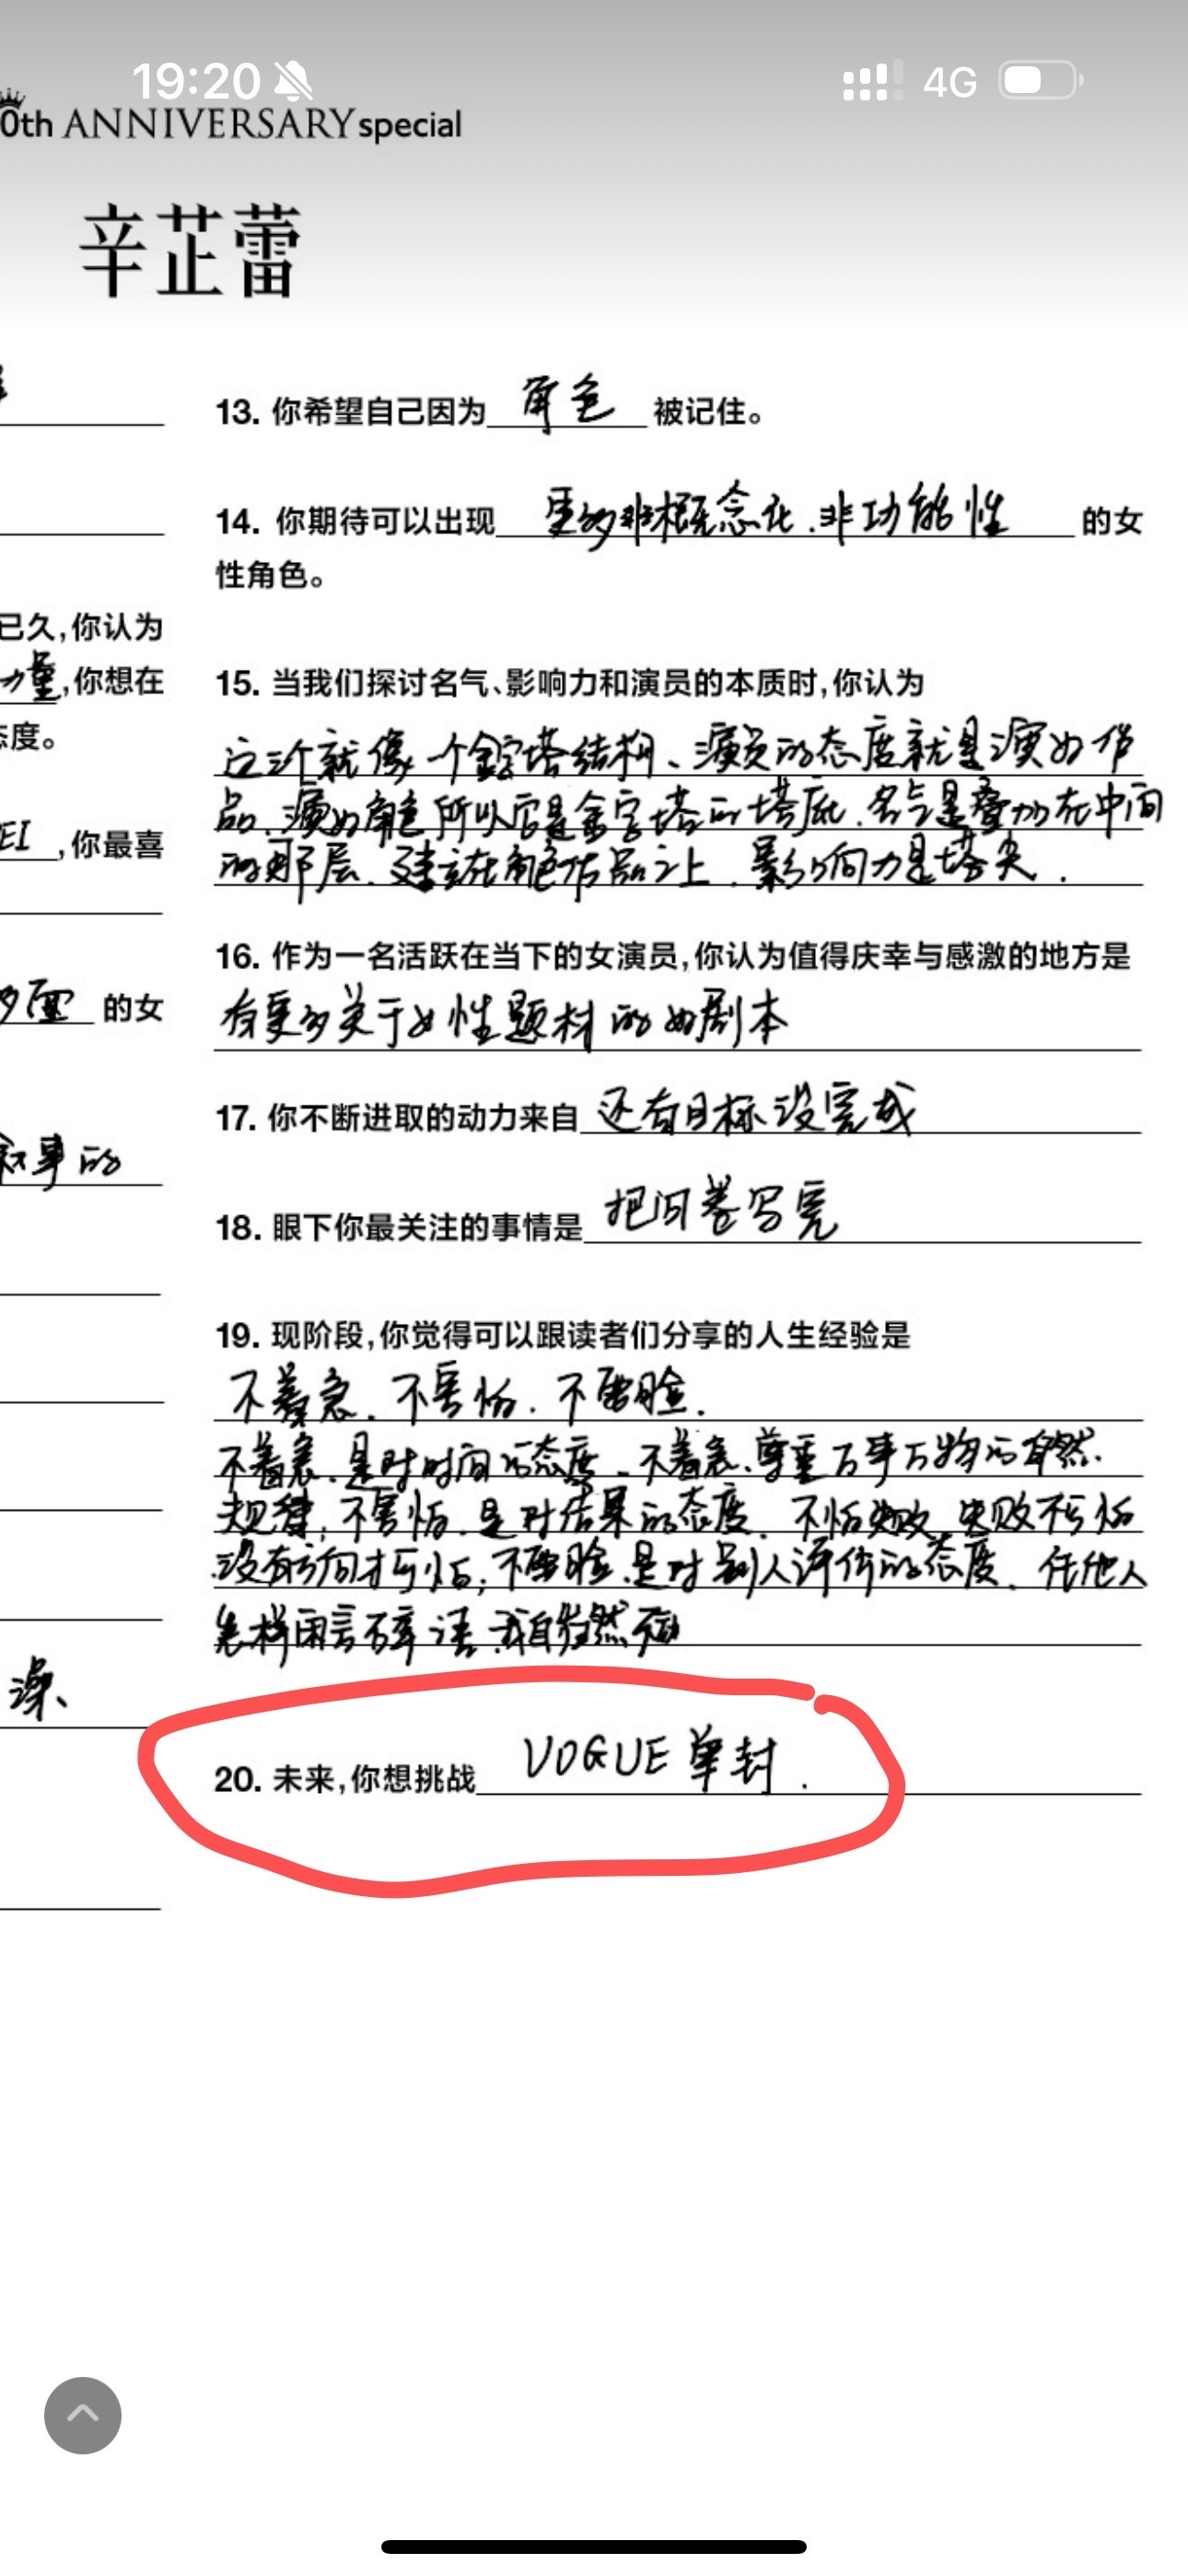 19:20
4G
0th ANNIVERSARY special
辛芷蕾
13. 你希望自己因为 角色 被记住。
14. 你期待可以出现 更多非概念化.非功能性 的女
性角色。
已久,你认为
力量,你想在
态度。
15. 当我们探讨名气、影响力和演员的本质时,你认为
这个就像一个金字塔结构、演员的态度就是演好作
品.演好角色所以它是金字塔的塔底.名气是叠加在中间
的那层.建立在角色作品之上.影响力是塔尖.
EI ,你最喜
多面 的女
16. 作为一名活跃在当下的女演员,你认为值得庆幸与感激的地方是
有更多关于女性题材的好剧本
17. 你不断进取的动力来自 还有目标没完成
叙事的
18. 眼下你最关注的事情是 把问卷写完
19. 现阶段,你觉得可以跟读者们分享的人生经验是
不着急.不害怕.不要脸.
不着急.是对时间的态度.不着急.尊重万事万物的自然.
规律;不害怕.是对结果的态度.不怕失败.失败不可怕
没有方向才可怕;不要脸.是对别人评价的态度.任他人
怎样闲言碎语.我自怡然
深、
20. 未来,你想挑战 VOGUE单封.